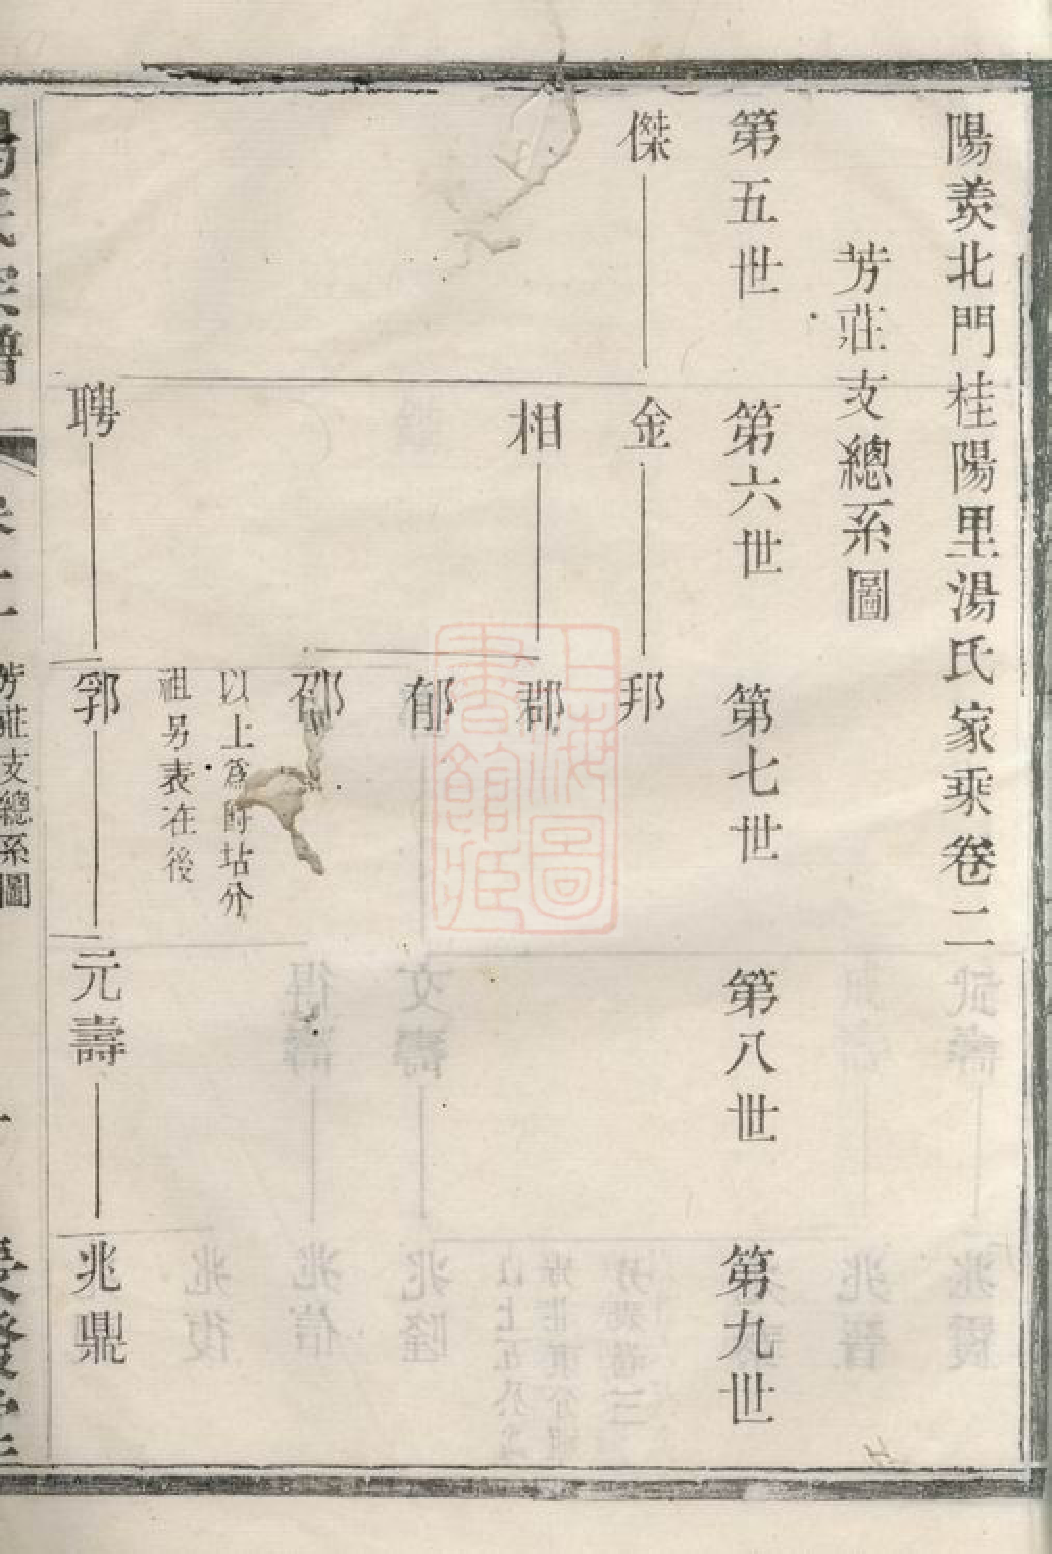 陽羨北門桂陽里湯氏家乘卷二
芳莊支總系圖
第五世
第六世
第七世
第八世
第九世
傑
金
邦
相
郡
郁
邵
以上爲前坫分
祖另表在後
聘
郛
元壽
兆鼎
湯氏宗譜
芳莊支總系圖
上海圖書館藏